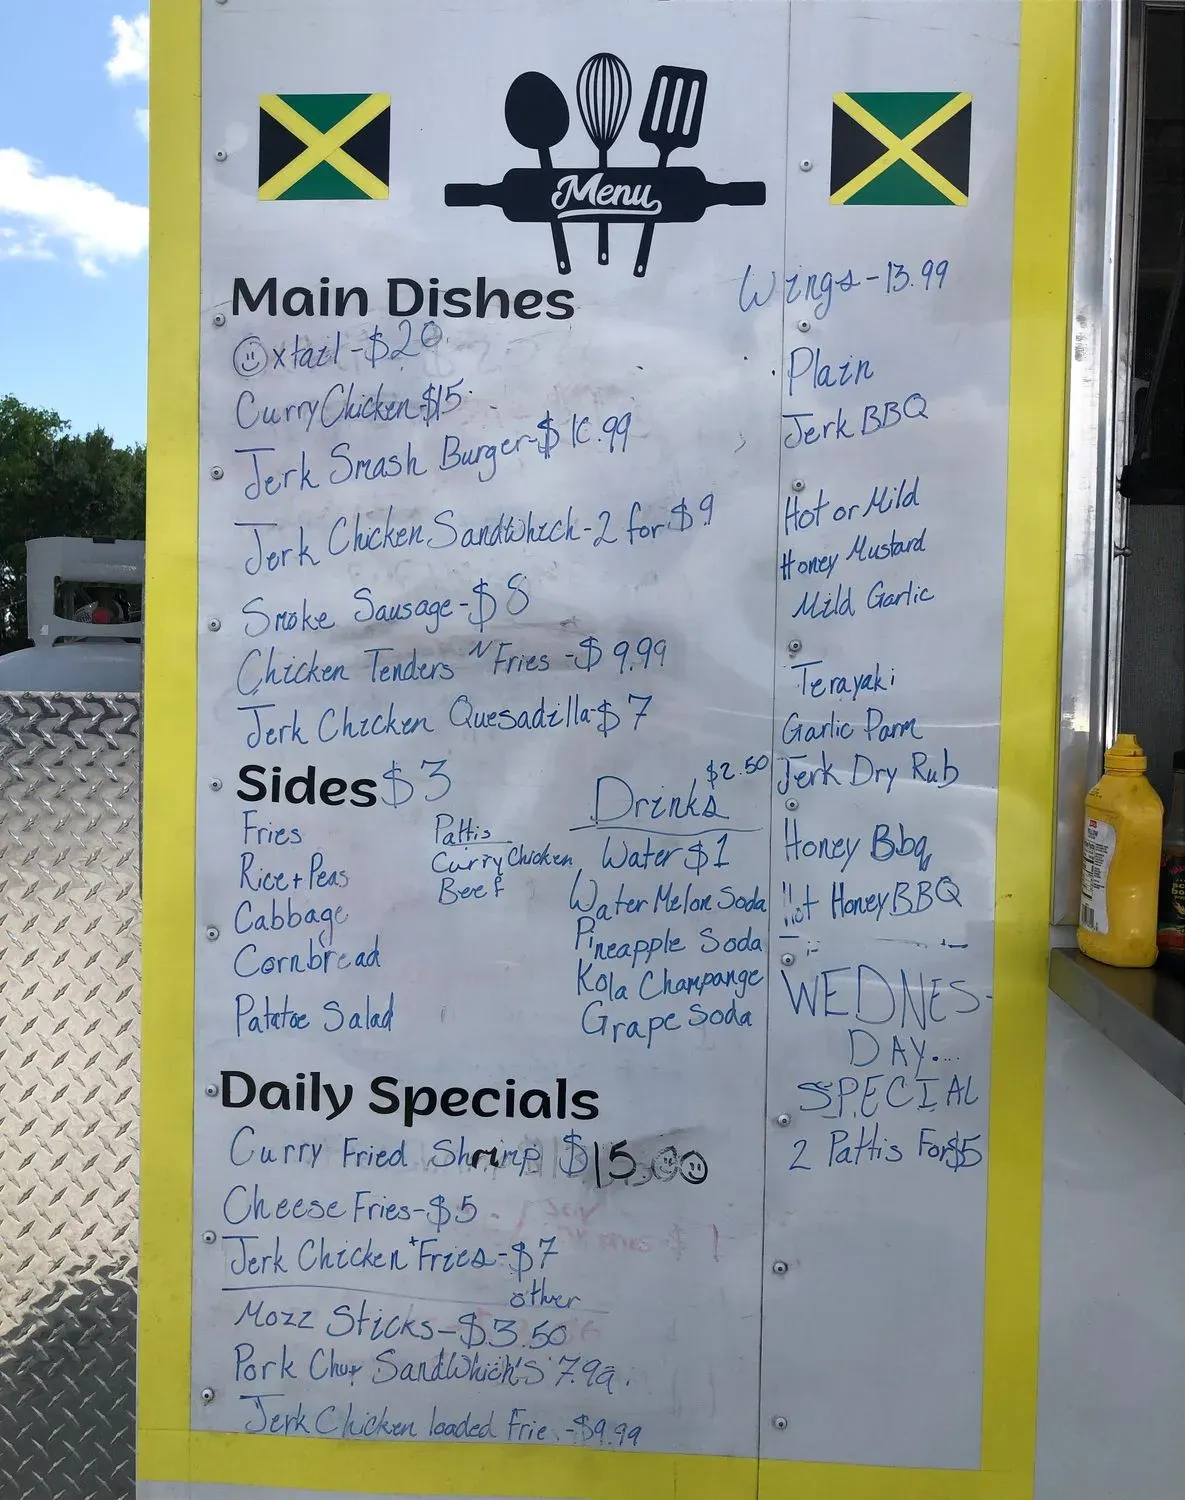 Menu
Main Dishes
Oxtail-$20
Curry Chicken-$15
Jerk Smash Burger-$10.99
Jerk Chicken SandWhich-2 for $9
Smoke Sausage-$8
Chicken Tenders N Fries -$9.99
Jerk Chicken Quesadilla-$7
Sides $3
Fries
Rice+Peas
Cabbage
Cornbread
Patatoe Salad
Pattis
Curry Chicken
Beef
$2.50
Drinks
Water $1
Water Melon Soda
Pineapple Soda
Kola Champange
Grape Soda
Daily Specials
Curry Fried Shrimp $15.00
Cheese Fries-$5
Jerk Chicken + Fries-$7
other
Mozz Sticks-$3.50
Pork Chop SandWhich's 7.99
Jerk Chicken loaded Frie -$9.99
Wings-13.99
Plain
Jerk BBQ
Hot or Mild
Honey Mustard
Mild Garlic
Terayaki
Garlic Parm
Jerk Dry Rub
Honey Bbq
Hot Honey BBQ
WEDNES-
DAY....
SPECIAL
2 Pattis For $5